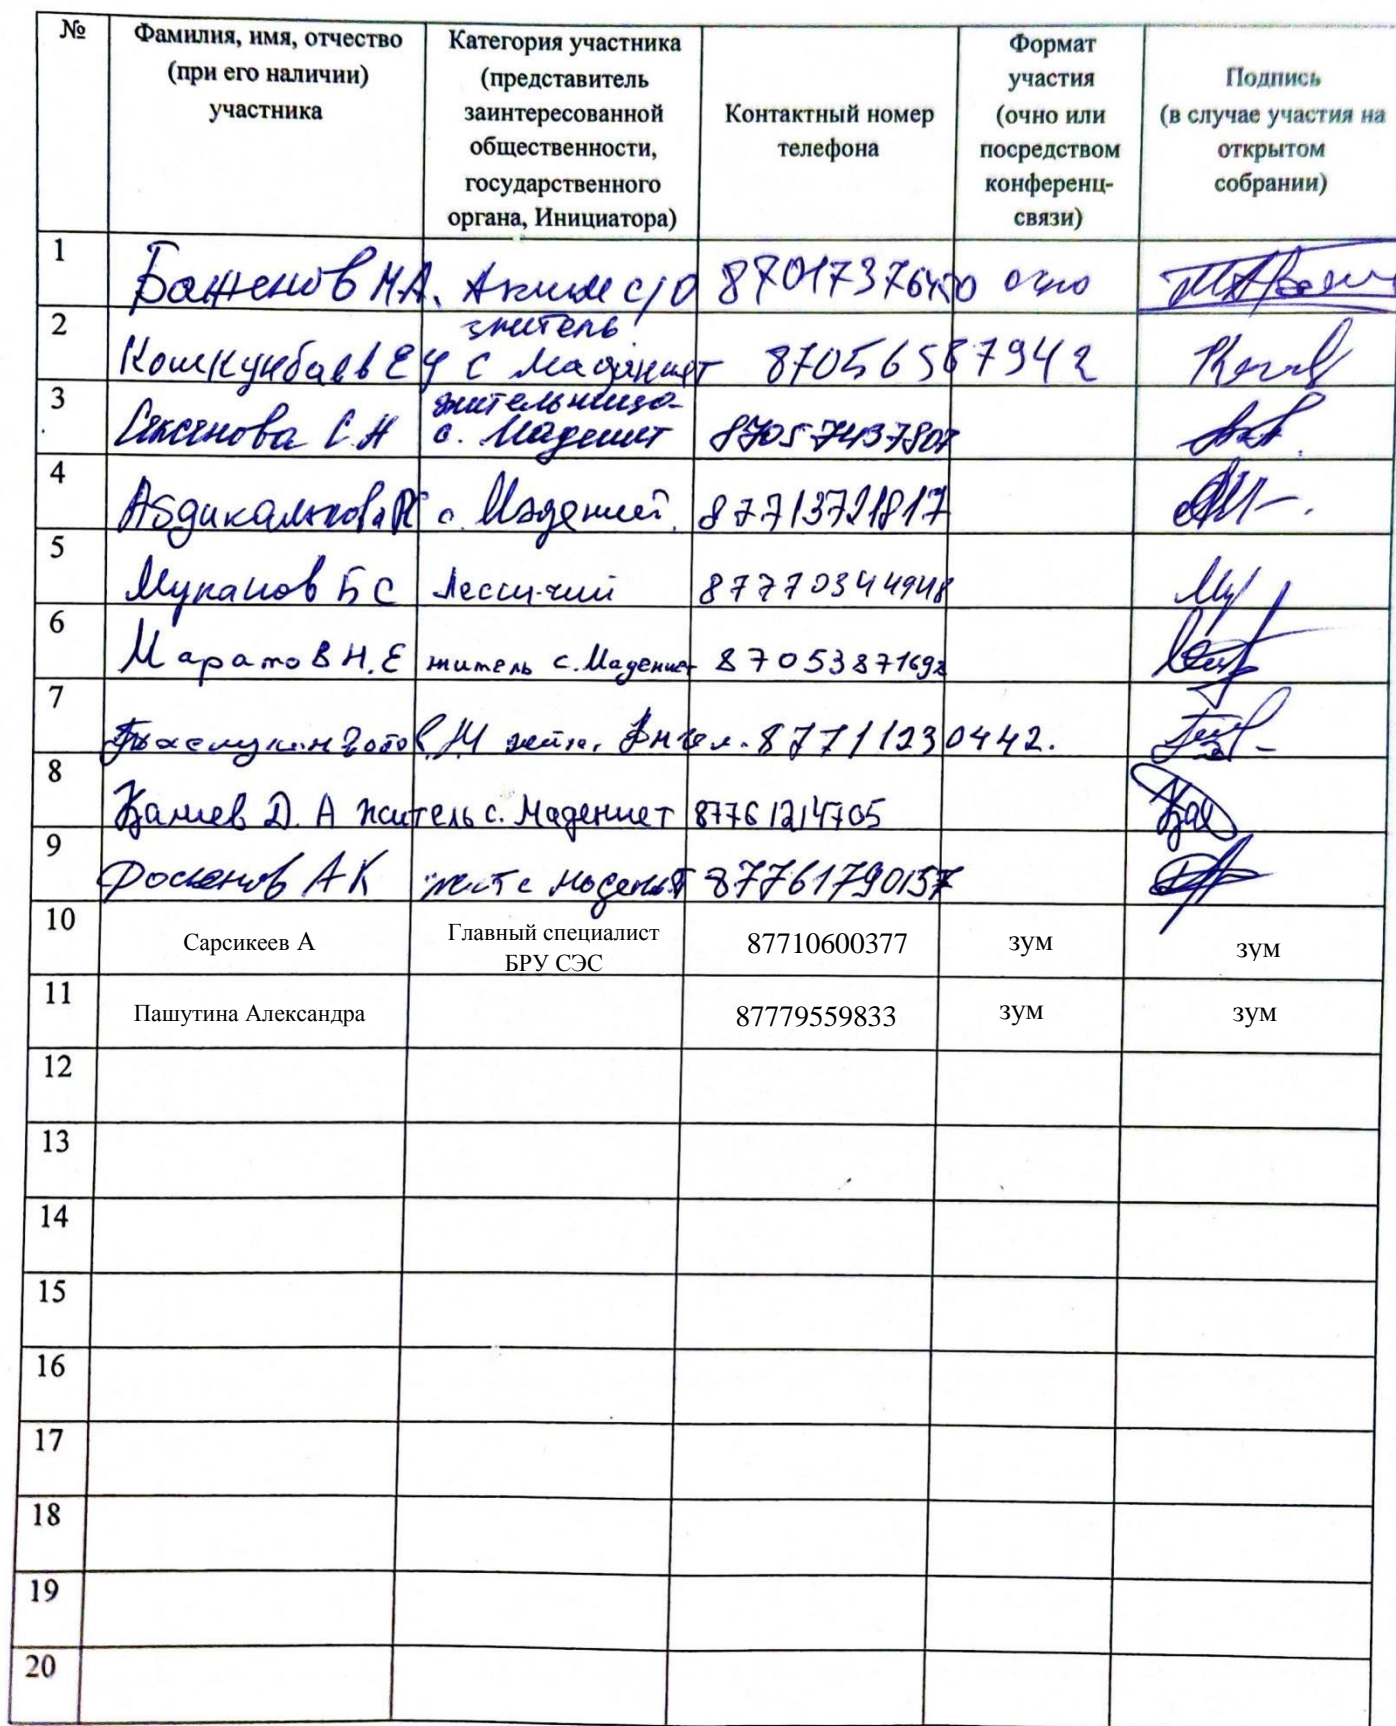 №
Фамилия, имя, отчество
(при его наличии)
участника
Категория участника
(представитель
заинтересованной
общественности,
государственного
органа, Инициатора)
Контактный номер
телефона
Формат
участия
(очно или
посредством
конференц-
связи)
Подпись
(в случае участия на
открытом
собрании)
1
Баженов М.А. Аким с/о
очно
2
житель
с Мадениет 87056567942
3
жительница
с. Мадениет 87057437807
4
с. Мадениет 87713721817
5
Муканов Б С
87770344948
6
Маратов Н.Е житель с. Мадениет 87053871692
7
87711230442.
8
Д. А житель с. Мадениет 87761214705
9
Досженов А К жит с Мадениет 87761790157
10
Сарсикеев А
Главный специалист
БРУ СЭС
87710600377
зум
зум
11
Пашутина Александра
87779559833
зум
зум
12
13
14
15
16
17
18
19
20